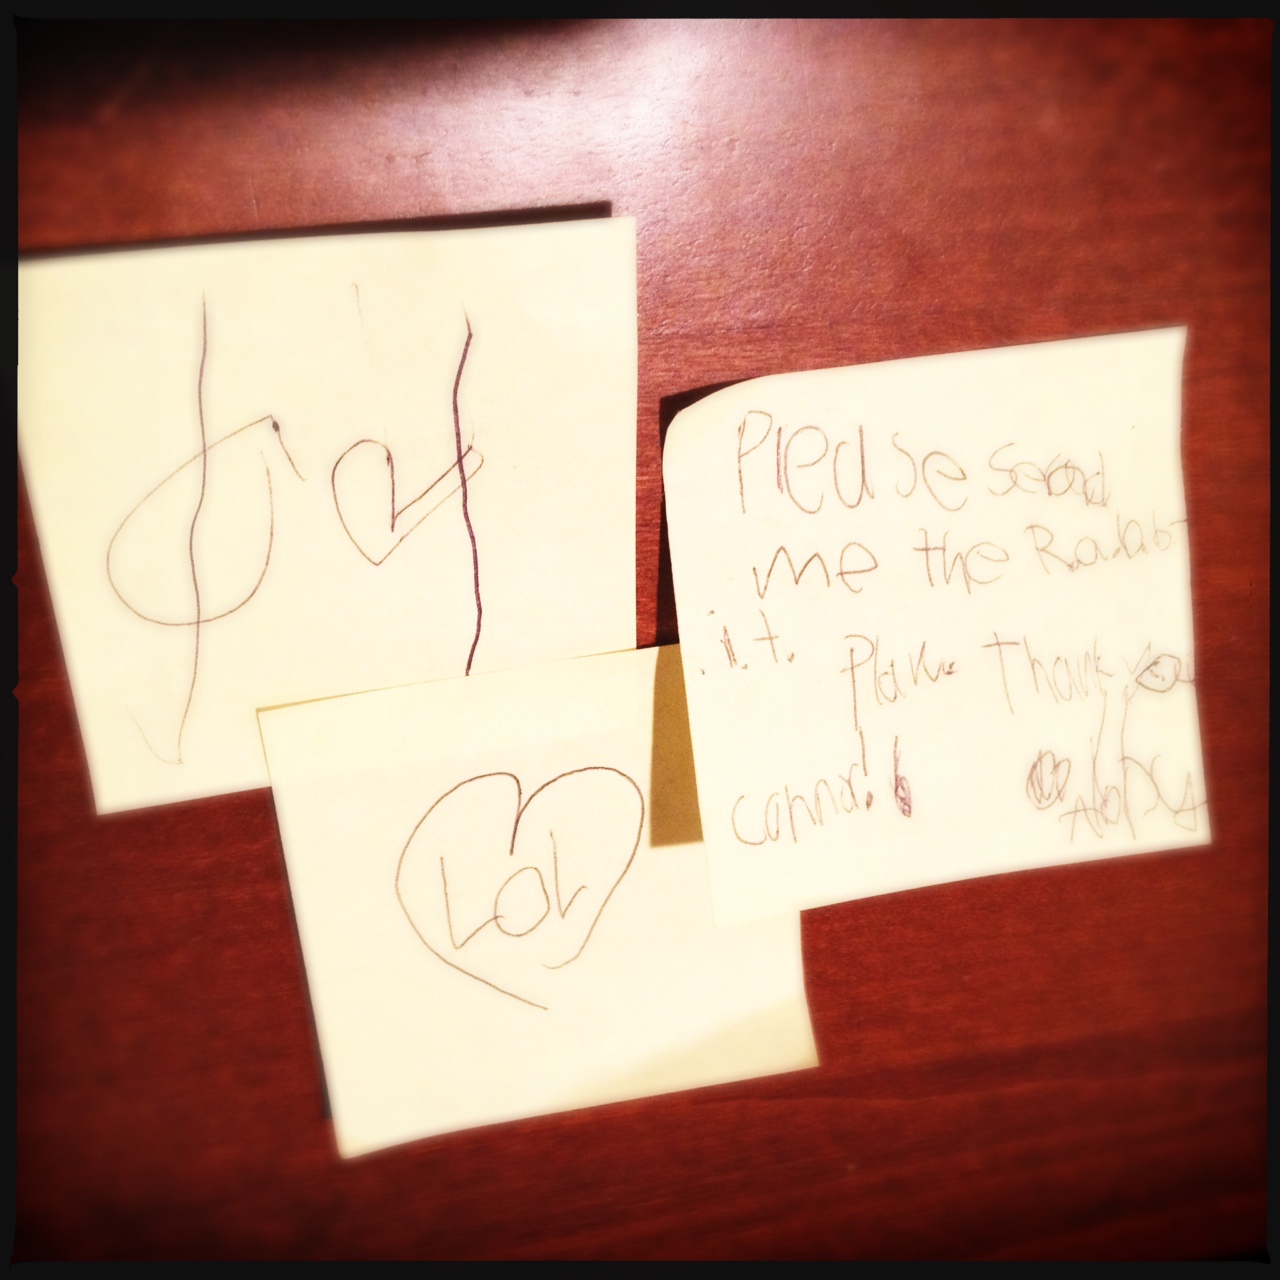 Please send
me the Rabab-
.i.t.
Plak. Thank you
connor!
LOL